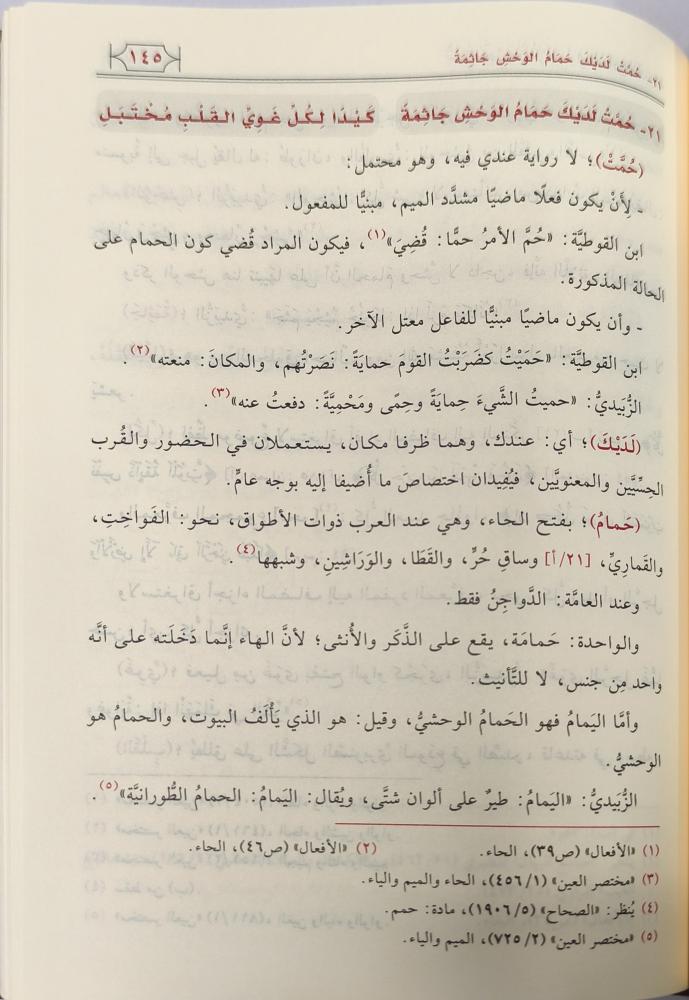 ٢١- حُمَّتْ لَدَيْكَ حَمَامُ الوَحْشِ جَاثِمَةً
١٤٥
٢١- حُمَّتْ لَدَيْكَ حَمَامُ الوَحْشِ جَاثِمَةً كَيْدًا لِكُلِّ غَوِيِّ القَلْبِ مُخْتَبَلِ
(حُمَّتْ)؛ لا رواية عندي فيه، وهو محتمل:
- لِأَنْ يكون فعلًا ماضيًا مشدَّد الميم، مبنيًّا للمفعول.
ابن القوطيَّة: «حُمَّ الأمرُ حمًّا: قُضِيَ»(١)، فيكون المراد قُضي كون الحمام على
الحالة المذكورة.
- وأن يكون ماضيًا مبنيًّا للفاعل معتل الآخر.
ابن القوطيَّة: «حَمَيْتُ كضَرَبْتُ القومَ حمايَةً: نَصَرْتُهم، والمكانَ: منعته»(٢).
الزُّبَيديُّ: «حميتُ الشَّيءَ حِمايَةً وحِمًى ومَحْمِيَّةً: دفعتُ عنه»(٣).
(لَدَيْكَ)؛ أي: عندك، وهما ظرفا مكان، يستعملان في الحضور والقُرب
الحِسِّيَّين والمعنويَّين، فيُفِيدان اختصاصَ ما أُضيفا إليه بوجه عامٍّ.
(حَمامُ)؛ بفتح الحاء، وهي عند العرب ذوات الأطواق، نحو: الفَواخِتِ،
والقَمارِيِّ، [٢١/أ] وساقِ حُرٍّ، والقَطَا، والوَرَاشِينِ، وشبهها(٤).
وعند العامَّة: الدَّواجِنُ فقط.
والواحدة: حَمامَة، يقع على الذَّكَر والأُنثى؛ لأنَّ الهاء إنَّما دَخَلَته على أنَّه
واحد مِن جنس، لا للتَّأنيث.
وأمَّا اليَمامُ فهو الحَمامُ الوحشيُّ، وقيل: هو الذي يَأْلَفُ البيوت، والحمامُ هو
الوحشيُّ.
الزُّبَيديُّ: «اليَمامُ: طيرٌ على ألوان شتَّى، ويُقال: اليَمامُ: الحمامُ الطُّورانيَّة»(٥).
(١) «الأفعال» (ص٣٩)، الحاء. (٢) «الأفعال» (ص٤٦)، الحاء.
(٣) «مختصر العين» (٤٥٦/١)، الحاء والميم والياء.
(٤) يُنظر: «الصحاح» (١٩٠٦/٥)، مادة: حمم.
(٥) «مختصر العين» (٧٢٥/٢)، الميم والياء.